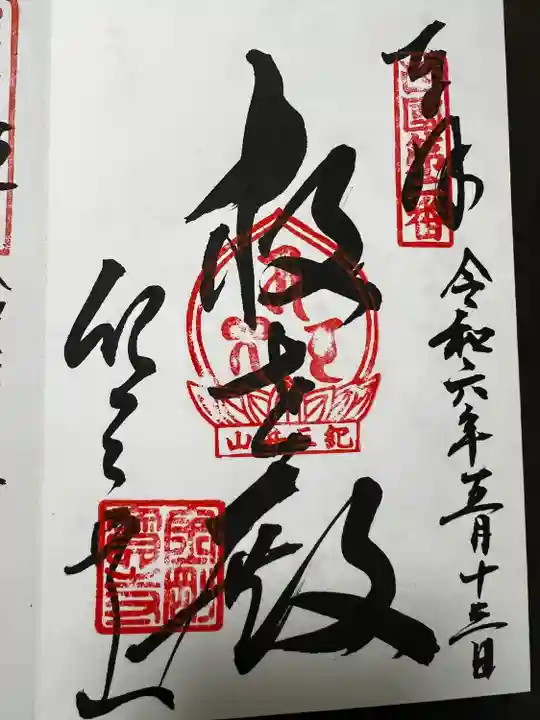 奉拝
西国第二番
令和六年五月十三日
救世殿
紀三井山
紀三井山
金剛寶寺